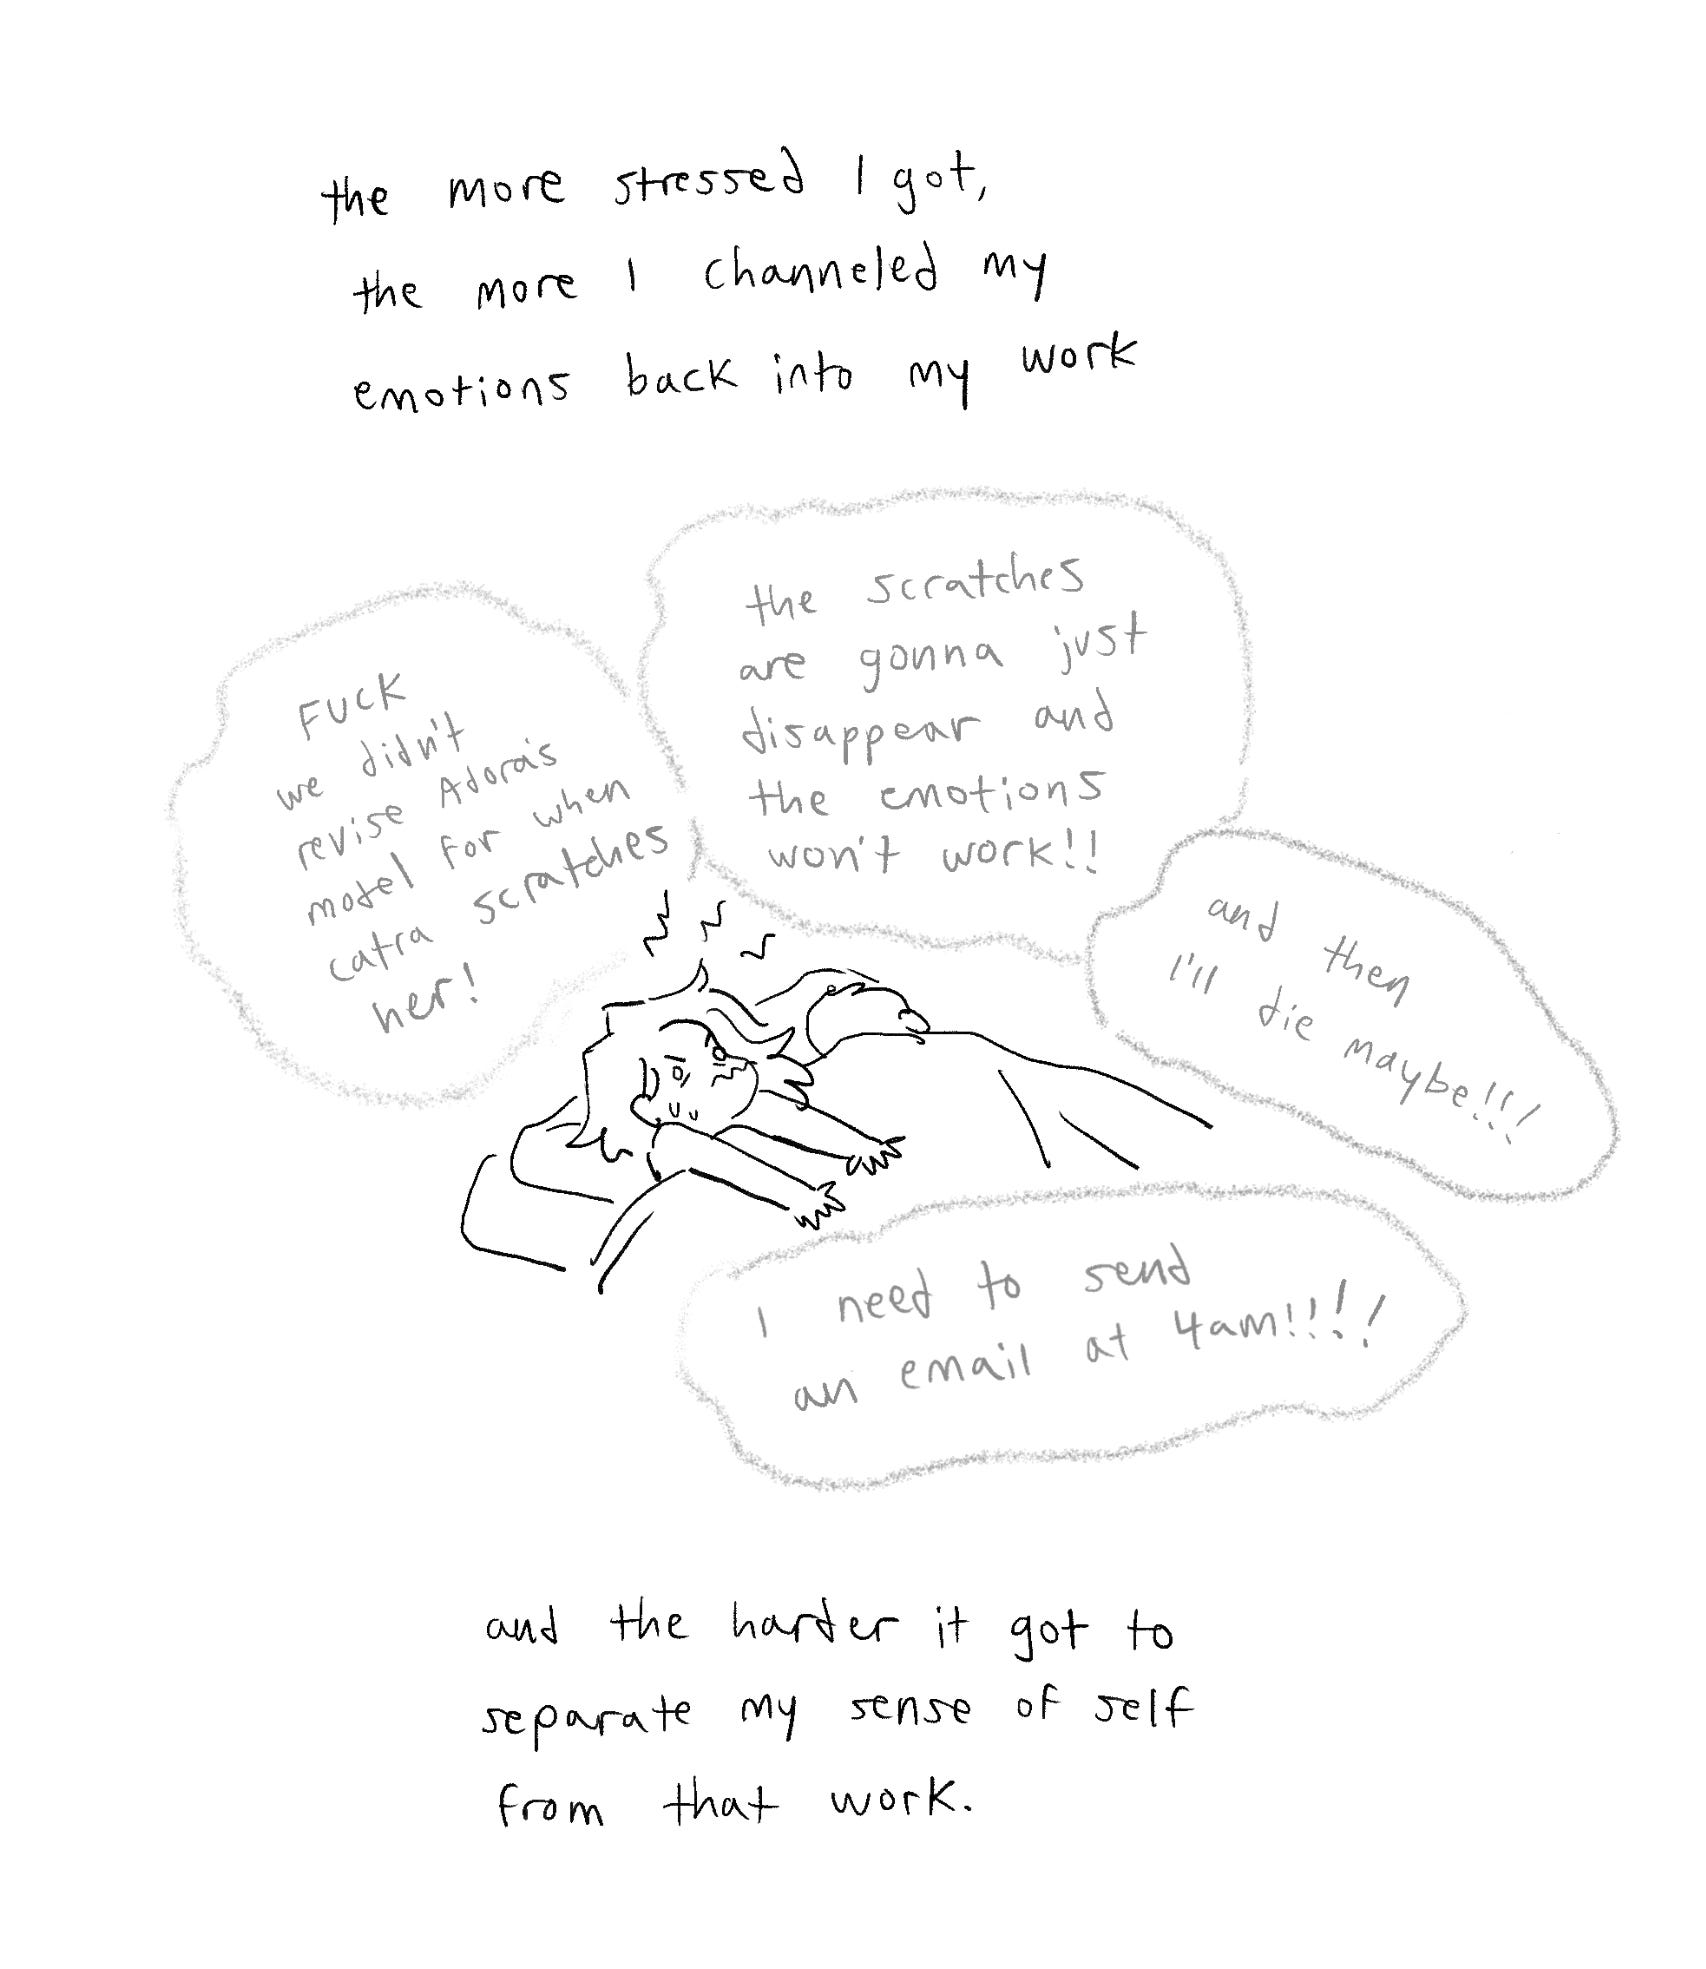 the more stressed I got,
the more I channeled my
emotions back into my work
FUCK
we didn't
revise Adora's
model for when
catra scratches
her!
the scratches
are gonna just
disappear and
the emotions
won't work!!
and then
I'll die maybe!!!
I need to send
an email at 4am!!!!!
and the harder it got to
separate my sense of self
from that work.